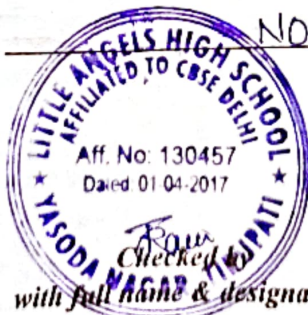 NO
LITTLE ANGELS HIGH SCHOOL
AFFILIATED TO CBSE DELHI
Aff. No: 130457
Dated: 01-04-2017
YASODA NAGAR, TIRUPATI
Checked by
with full name & designa